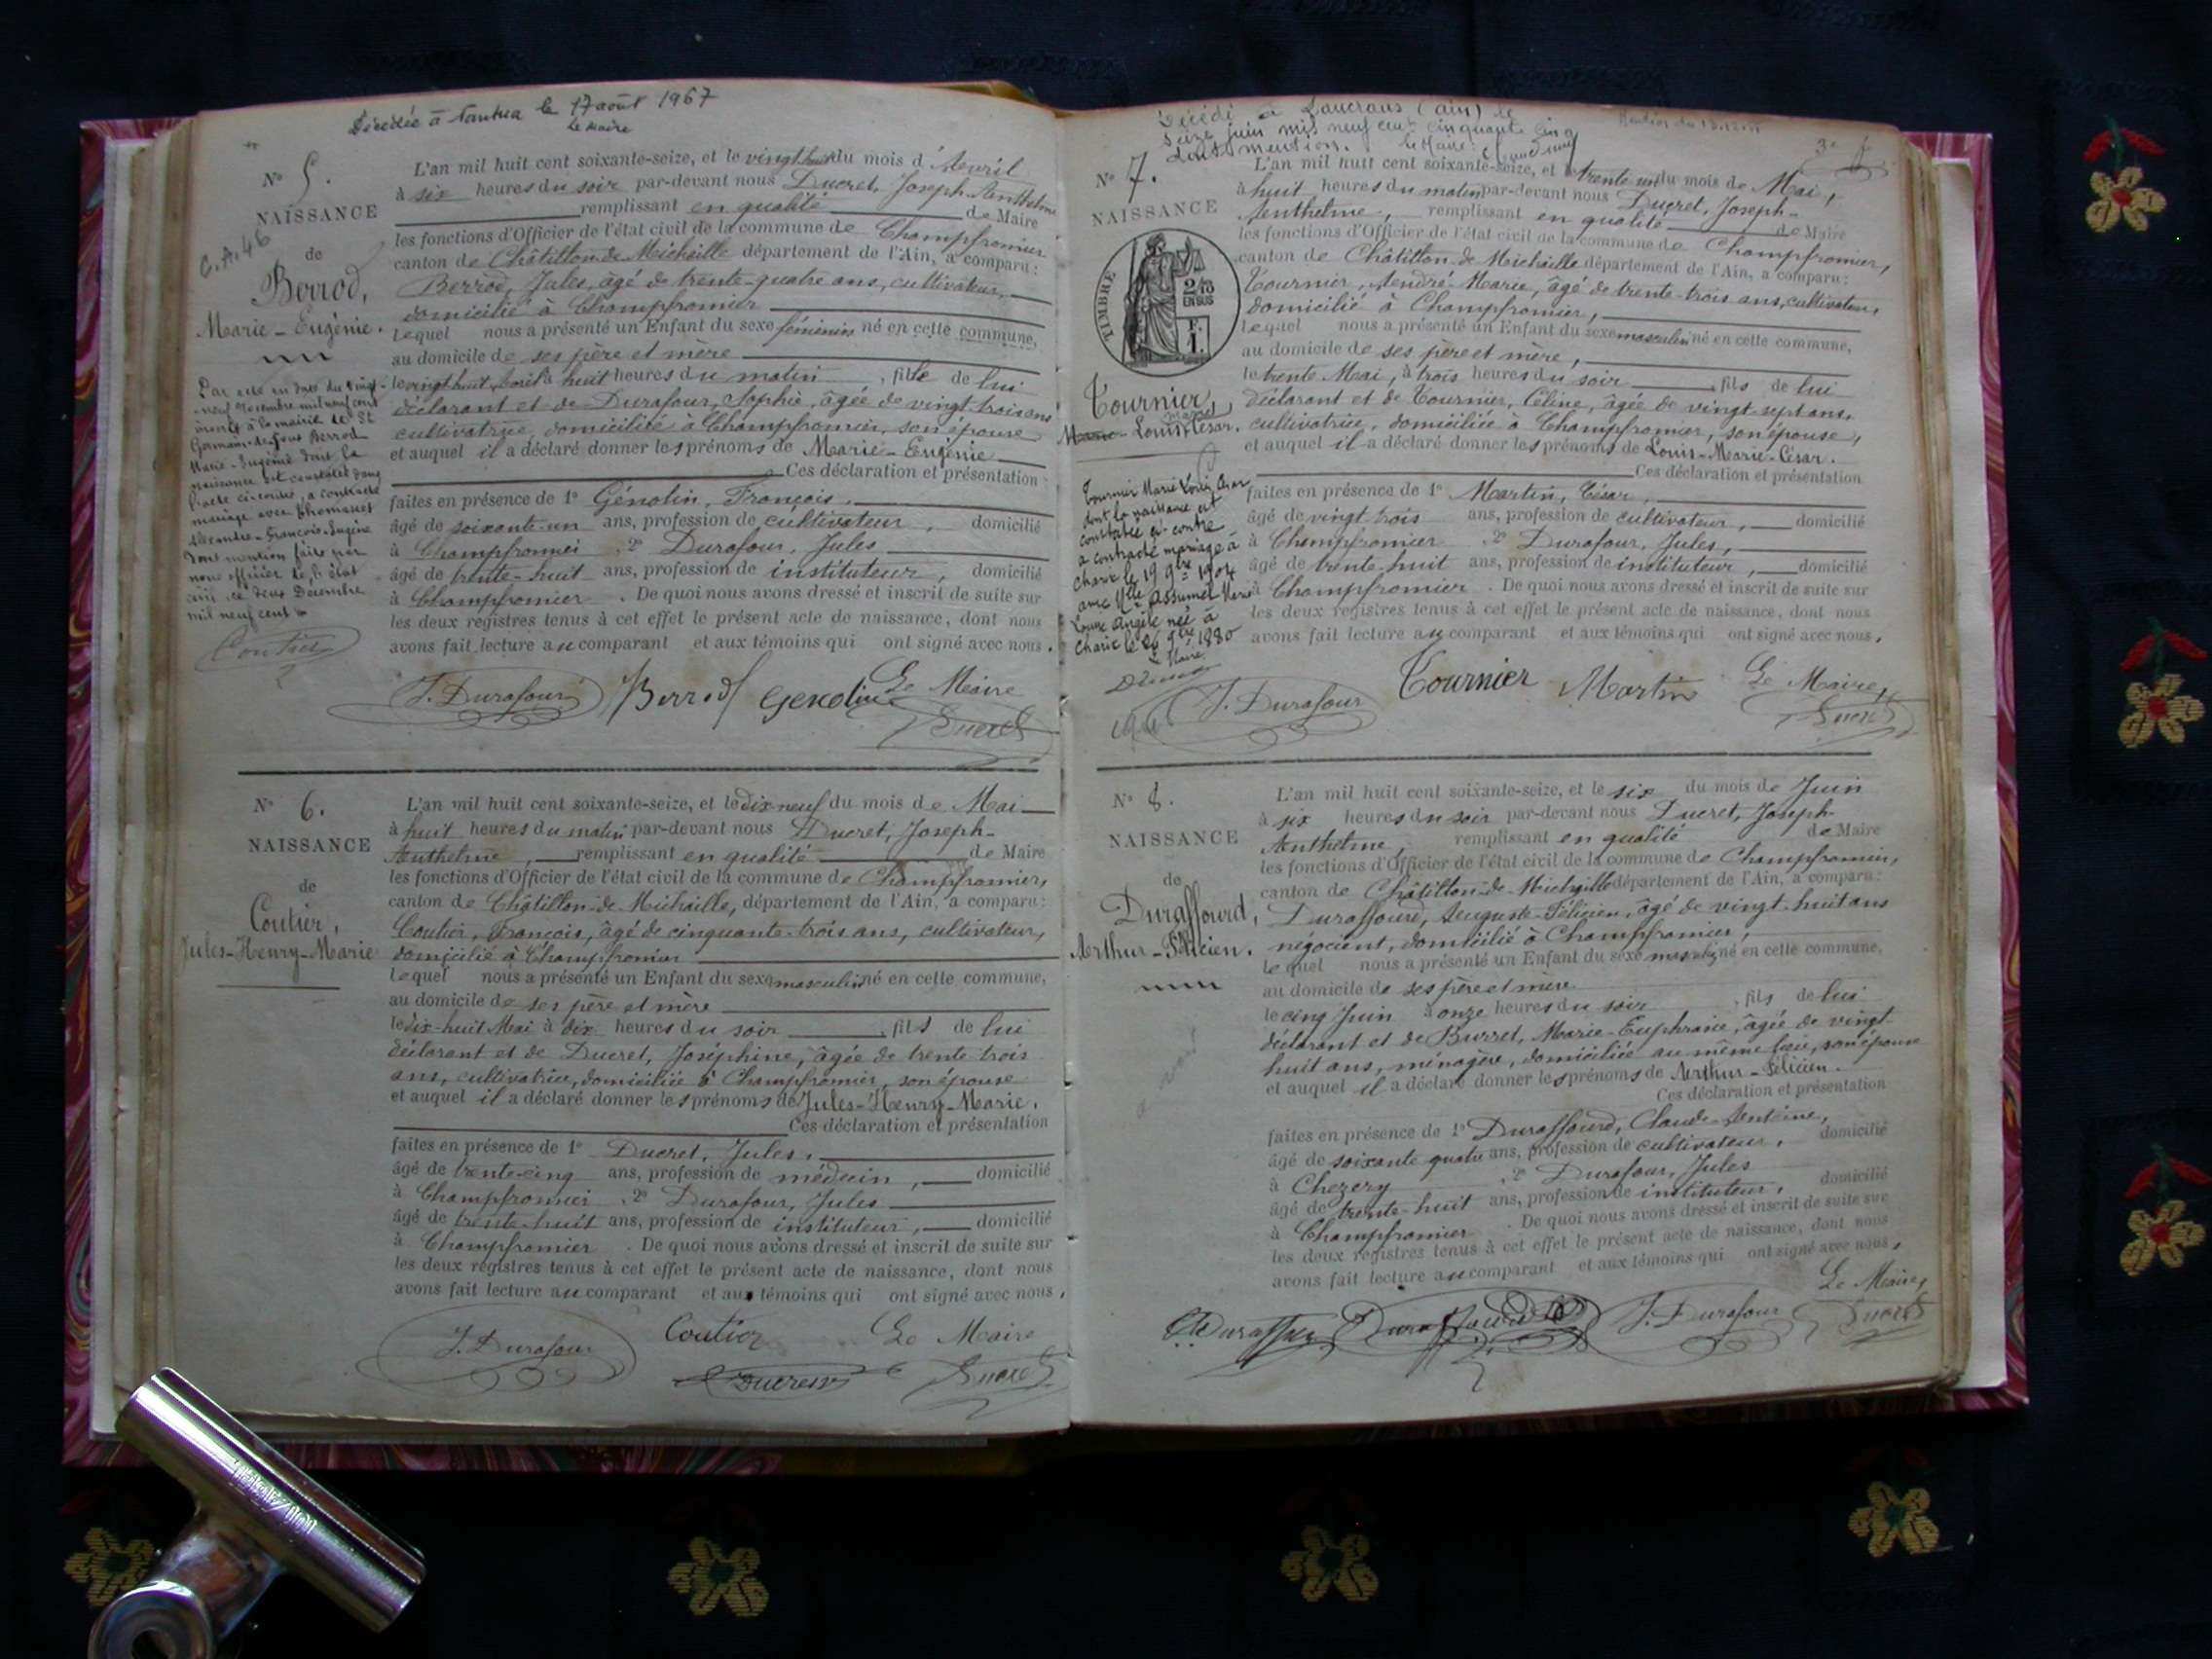 Décédée à Nantua le 17 août 1967
le Maire
N° 5.
NAISSANCE
de
Berrod,
Marie-Eugénie.
C.A. 46
Par acte en date du vingt-
neuf Novembre mil neuf cent
à la mairie de St
Germain-de-Joux Berrod
Marie-Eugénie dont la
naissance est constatée dans
l'acte ci-contre, a contracté
mariage avec
Alexandre-François-Eugène
Dont mention faite par
nous officier de l'état
civil ce deux Décembre
mil neuf cent
Coutier
L'an mil huit cent soixante-seize, et le vingt huit du mois d'Avril
à six heures du soir par-devant nous Ducret, Joseph-Anthelme
remplissant en qualité de Maire
les fonctions d'Officier de l'état civil de la commune de Champfromier
canton de Châtillon-de-Michaille département de l'Ain, a comparu:
Berrod, Jules, âgé de trente-quatre ans, cultivateur,
domicilié à Champfromier
lequel nous a présenté un Enfant du sexe féminin né en cette commune,
au domicile de ses père et mère
le vingt huit Avril à huit heures du matin, fille de lui
déclarant et de Durafour, Sophie, âgée de vingt trois ans
cultivatrice, domiciliée à Champfromier, son épouse
et auquel il a déclaré donner les prénoms de Marie-Eugénie
Ces déclaration et présentation
faites en présence de 1° Génolin, François,
âgé de soixante-un ans, profession de cultivateur, domicilié
à Champfromier, 2° Durafour, Jules
âgé de trente-huit ans, profession de instituteur, domicilié
à Champfromier. De quoi nous avons dressé et inscrit de suite sur
les deux registres tenus à cet effet le présent acte de naissance, dont nous
avons fait lecture au comparant et aux témoins qui ont signé avec nous.
J. Durafour Berrod Genolin Le Maire
Ducret
N° 6.
NAISSANCE
de
Coutier,
Jules-Henry-Marie
L'an mil huit cent soixante-seize, et le dix-neuf du mois de Mai
à huit heures du matin par-devant nous Ducret, Joseph-
Anthelme, remplissant en qualité de Maire
les fonctions d'Officier de l'état civil de la commune de Champfromier,
canton de Châtillon-de-Michaille, département de l'Ain, a comparu:
Coutier, François, âgé de cinquante-trois ans, cultivateur,
domicilié à Champfromier
lequel nous a présenté un Enfant du sexe masculin né en cette commune,
au domicile de ses père et mère
le dix-huit Mai à dix heures du soir, fils de lui
déclarant et de Ducret, Joséphine, âgée de trente trois
ans, cultivatrice, domiciliée à Champfromier, son épouse
et auquel il a déclaré donner les prénoms de Jules-Henry-Marie.
Ces déclaration et présentation
faites en présence de 1° Ducret, Jules,
âgé de trente-cinq ans, profession de médecin, domicilié
à Champfromier, 2° Durafour, Jules
âgé de trente-huit ans, profession de instituteur, domicilié
à Champfromier. De quoi nous avons dressé et inscrit de suite sur
les deux registres tenus à cet effet le présent acte de naissance, dont nous
avons fait lecture au comparant et aux témoins qui ont signé avec nous,
J. Durafour Coutier Le Maire
Ducret
Décédé à Lancrans (Ain) le
seize juin mil neuf cent cinquante cinq
dont mention. le Maire:
3e
N° 7.
NAISSANCE
TIMBRE
2/10
EN SUS
F.
1.
Tournier,
Marie
Marie-Louis-César.
Tournier Marie Louis César
dont la naissance est
constatée ci-contre
a contracté mariage à
Charix le 19 9bre 1904
avec Melle Assumel
Louise Angèle née à
Charix le 26 9bre 1880
Le Maire
L'an mil huit cent soixante-seize, et le trente un du mois de Mai,
à huit heures du matin par-devant nous Ducret, Joseph-
Anthelme, remplissant en qualité de Maire
les fonctions d'Officier de l'état civil de la commune de Champfromier,
canton de Châtillon-de-Michaille département de l'Ain, a comparu:
Tournier, André-Marie, âgé de trente-trois ans, cultivateur,
domicilié à Champfromier,
lequel nous a présenté un Enfant du sexe masculin né en cette commune,
au domicile de ses père et mère,
le trente Mai, à trois heures du soir, fils de lui
déclarant et de Tournier, Céline, âgée de vingt-sept ans,
cultivatrice, domiciliée à Champfromier, son épouse,
et auquel il a déclaré donner les prénoms de Louis-Marie-César.
Ces déclaration et présentation
faites en présence de 1° Martin, César,
âgé de vingt trois ans, profession de cultivateur, domicilié
à Champfromier, 2° Durafour, Jules,
âgé de trente-huit ans, profession de instituteur, domicilié
à Champfromier. De quoi nous avons dressé et inscrit de suite sur
les deux registres tenus à cet effet le présent acte de naissance, dont nous
avons fait lecture au comparant et aux témoins qui ont signé avec nous.
J. Durafour Tournier Martin Le Maire,
Ducret
N° 8.
NAISSANCE
de
Duraffourd,
Arthur-Félicien.
L'an mil huit cent soixante-seize, et le six du mois de Juin
à six heures du soir par-devant nous Ducret, Joseph-
Anthelme, remplissant en qualité de Maire
les fonctions d'Officier de l'état civil de la commune de Champfromier,
canton de Châtillon-de-Michaille département de l'Ain, a comparu:
Duraffourd, Auguste-Félicien, âgé de vingt-huit ans
négociant, domicilié à Champfromier,
lequel nous a présenté un Enfant du sexe masculin né en cette commune,
au domicile de ses père et mère
le cinq Juin à onze heures du soir, fils de lui
déclarant et de Burret, Marie-Euphraie, âgée de vingt-
huit ans, ménagère, domiciliée au même lieu, son épouse
et auquel il a déclaré donner les prénoms de Arthur-Félicien.
Ces déclaration et présentation
faites en présence de 1° Duraffourd, Claude-Antoine,
âgé de soixante quatre ans, profession de cultivateur, domicilié
à Chezery, 2° Durafour, Jules
âgé de trente-huit ans, profession de instituteur, domicilié
à Champfromier. De quoi nous avons dressé et inscrit de suite sur
les deux registres tenus à cet effet le présent acte de naissance, dont nous
avons fait lecture au comparant et aux témoins qui ont signé avec nous,
Le Maire,
J. Durafour Ducret